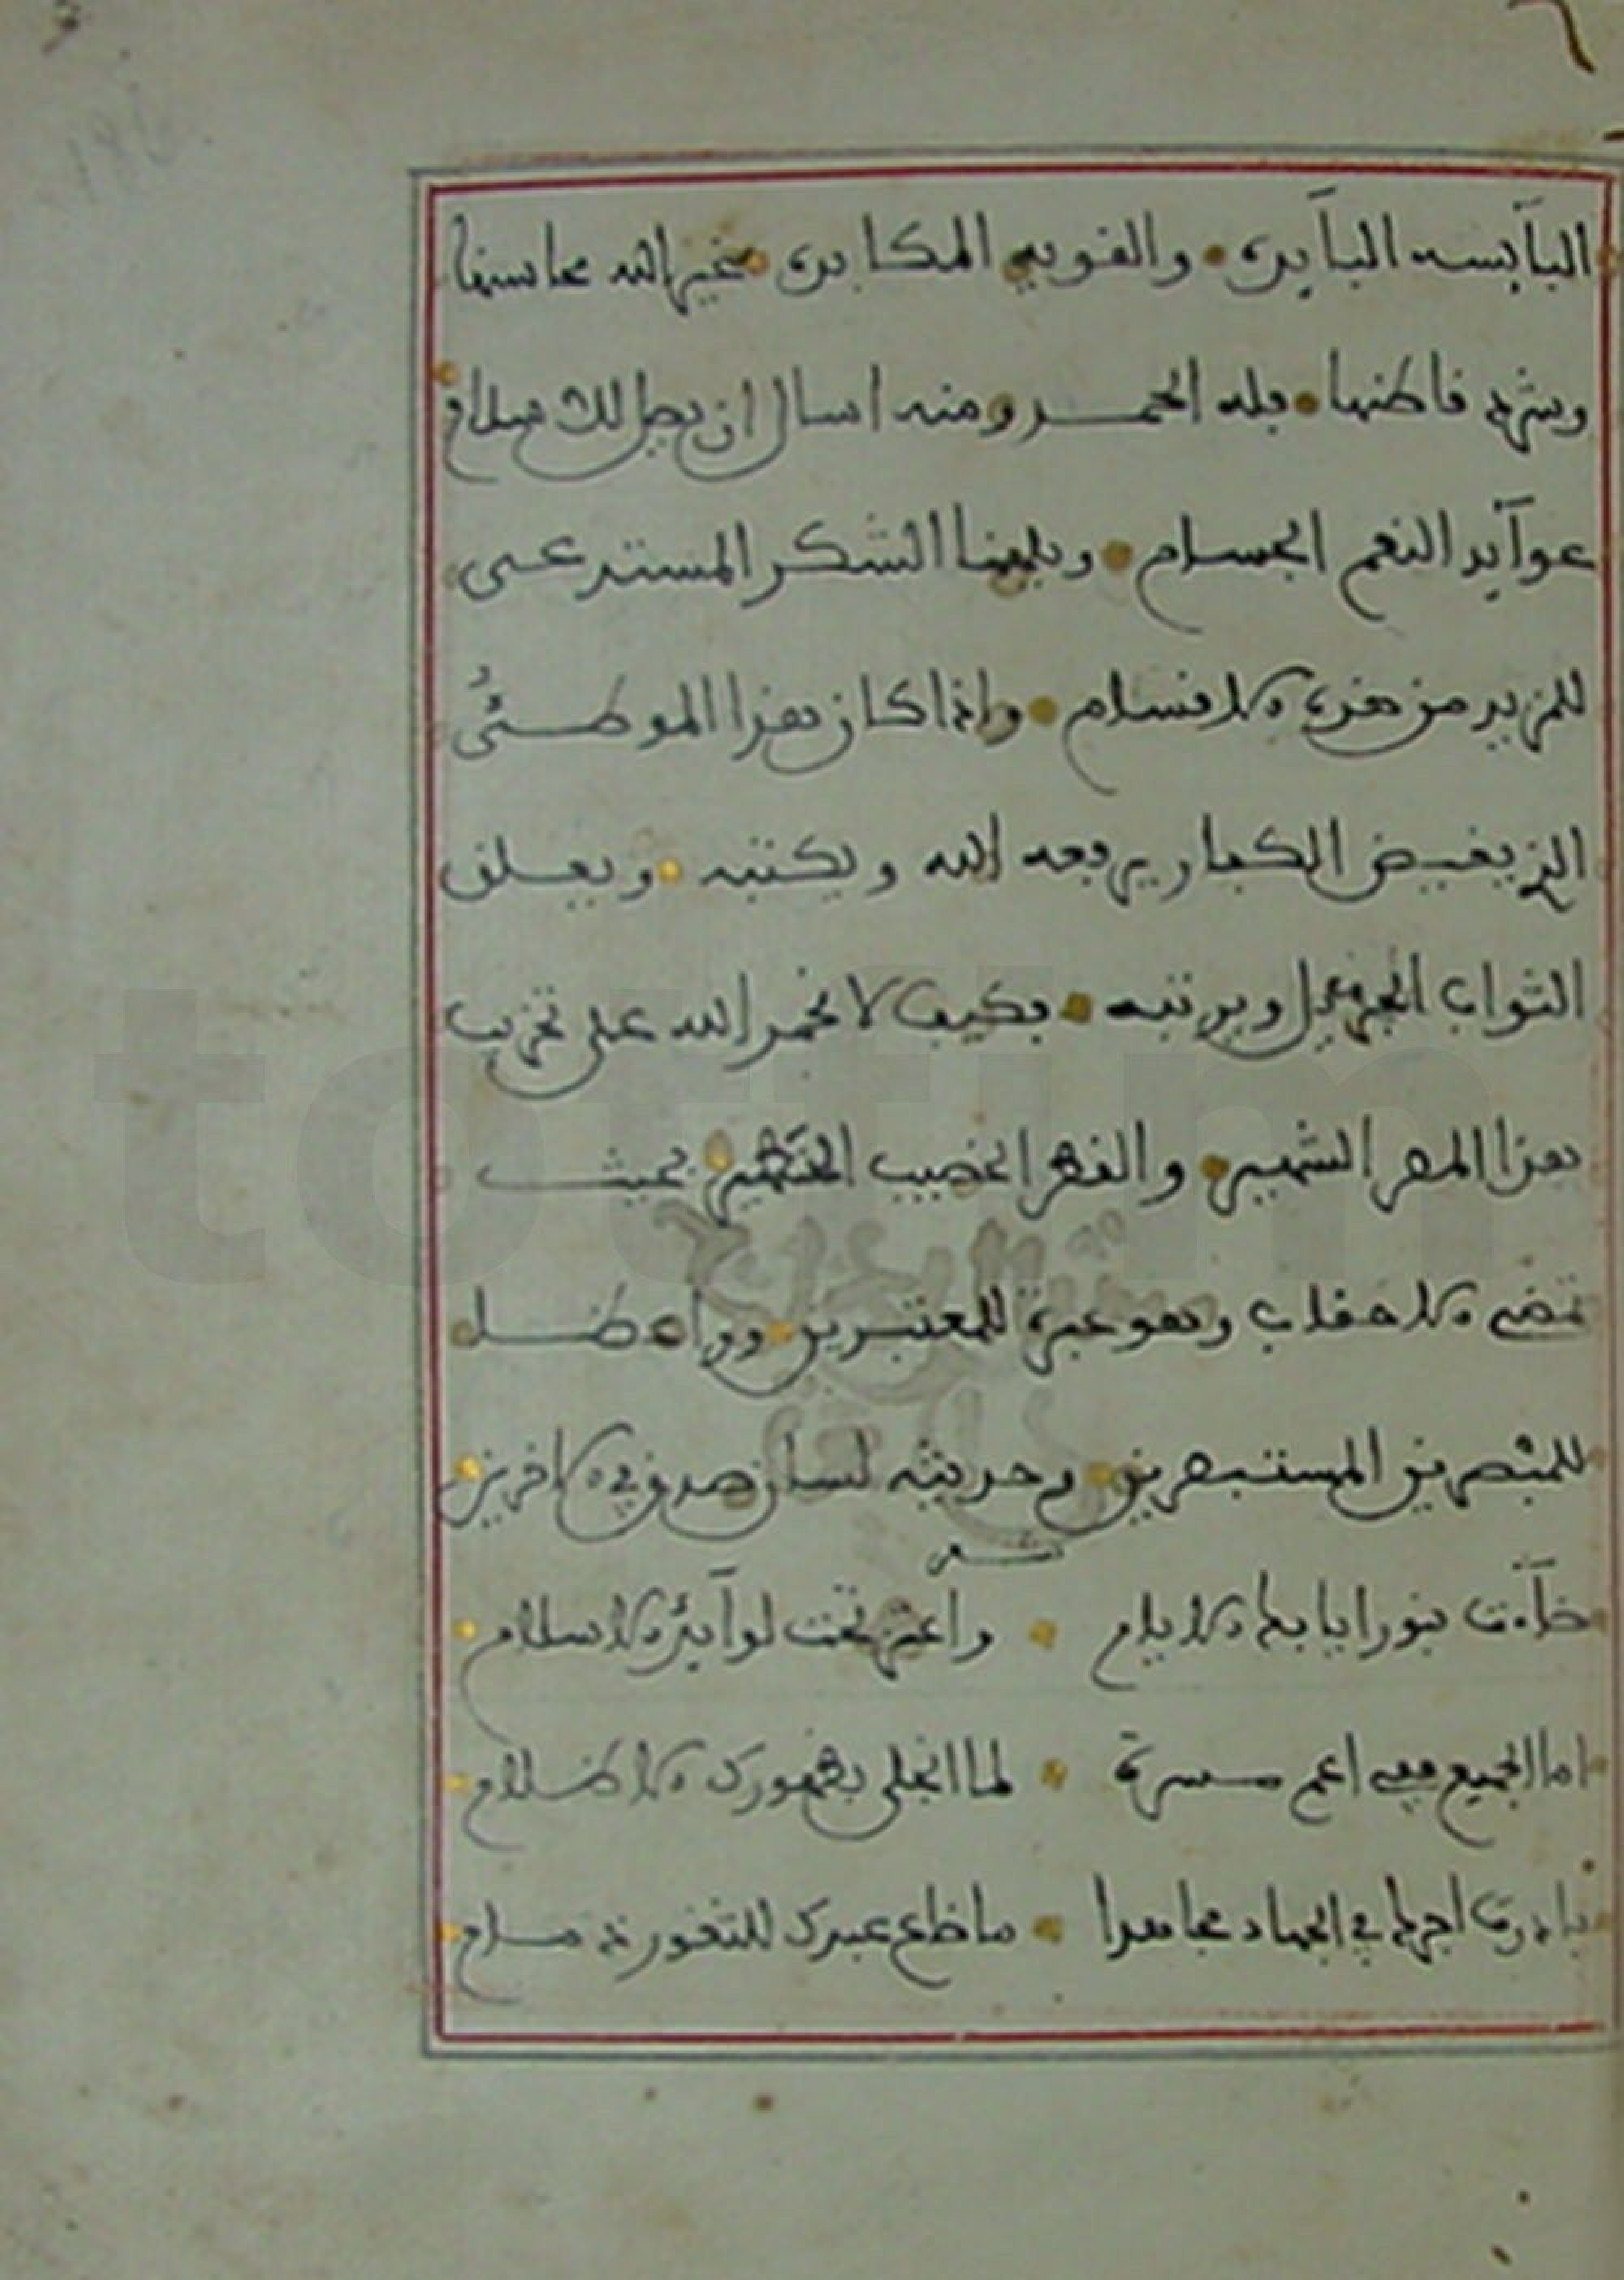 البآئسه البآيرة والقويه المكابرة فخير الله محاسنها
وشرد قاطنها فلله الحمد ومنه اسال ان يصل لك صلاة
عوآيد النعم الجسام ويلهمنا الشكر المستدعى
للمزيد من هذه الاقسام واذا كان هذا الموطئ
الذي يغيض الكفار يرفعه الله ويكتبه ويعلق
الثواب الجزيل ويرتبه فكيف لا نحمد الله على تخريب
هذا المصر الشهير والقصر الخصيب بحيث
تمضى الاحقاب وهو عبرة للمعتبرين وواعظ
للمبصرين المستبصرين وحديثه لسان صدق في الاخرين
شعر
ضآءت بنور ايابك الايام واعتز تحت لوآئك الاسلام
اما الجميع ففي اعم مسرة لما انجلى بظهورك الاظلام
بادرت اجرك في الجهاد مجاهدا ما ضاع عندك للثغور ذمام